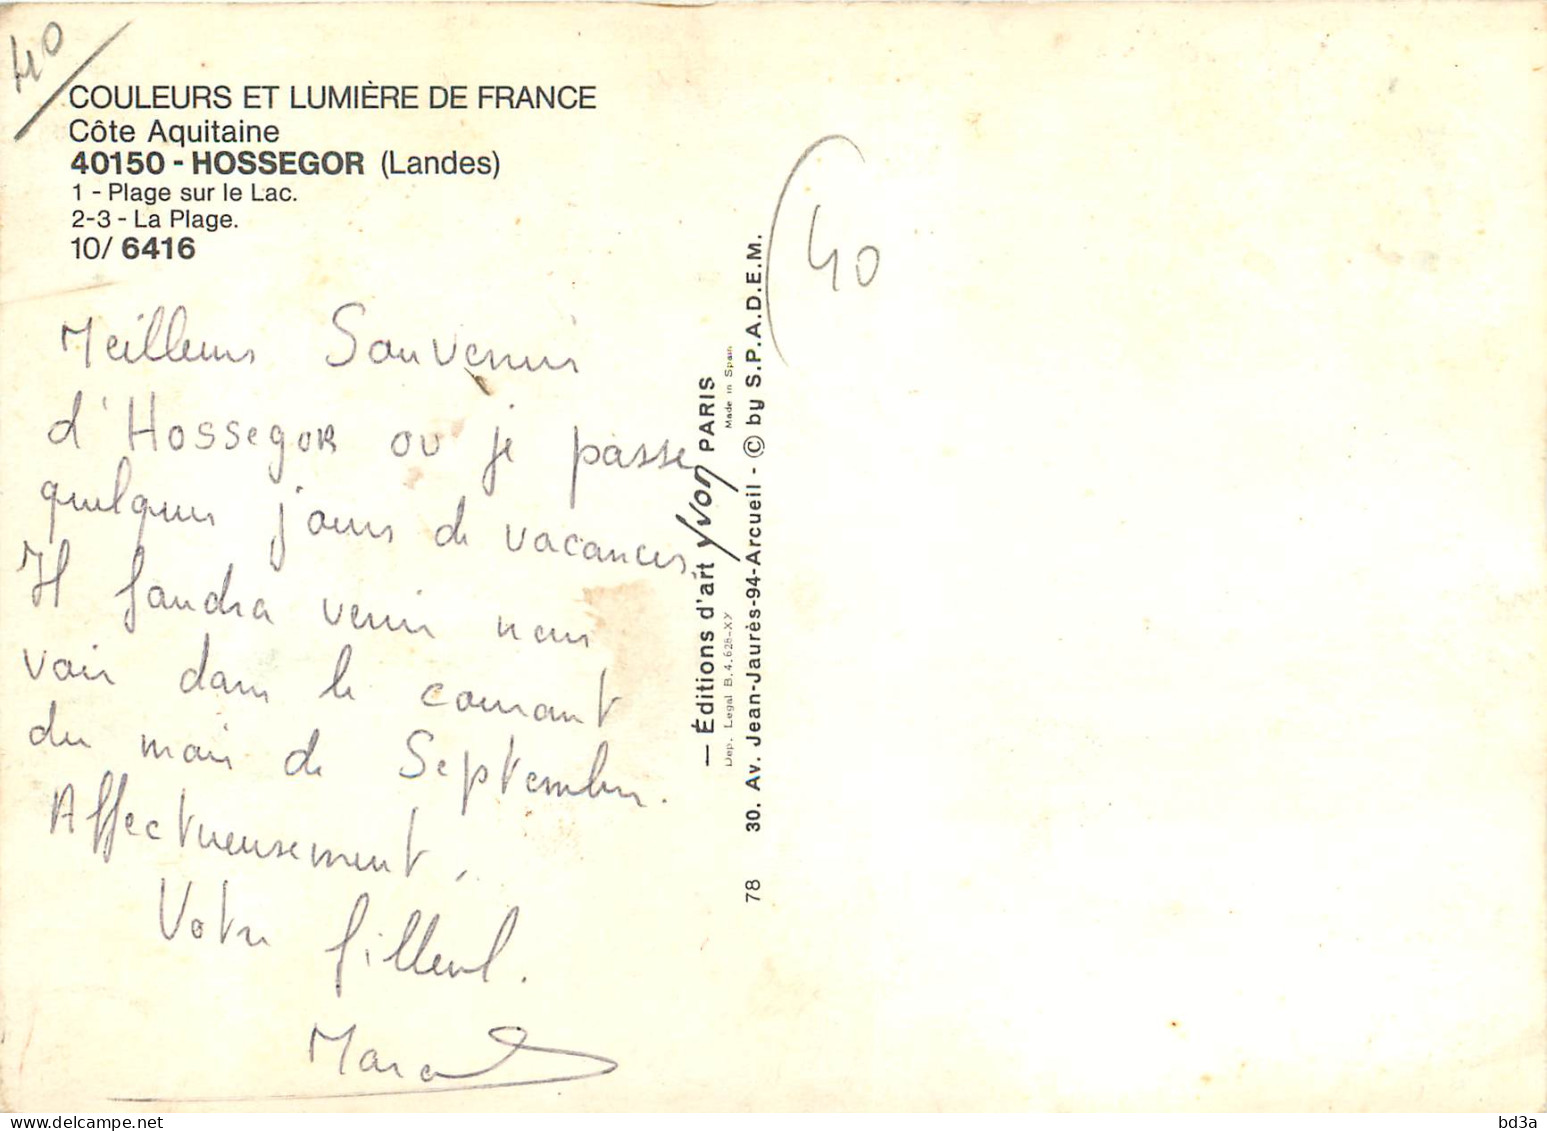 40
COULEURS ET LUMIÈRE DE FRANCE
Côte Aquitaine
40150 - HOSSEGOR (Landes)
1 - Plage sur le Lac.
2-3 - La Plage.
10/ 6416
Meilleurs Souvenirs
d'Hossegor ou je passe
quelques jours de vacances.
Il faudra venir nous
voir dans le courant
du mois de Septembre.
Affectueusement,
Votre filleul.
40
— Éditions d'art Yvon PARIS
Dép. Legal B.4.628-XY Made in Spain
78 30. Av. Jean-Jaurès-94-Arcueil - © by S.P.A.D.E.M.
bd3a